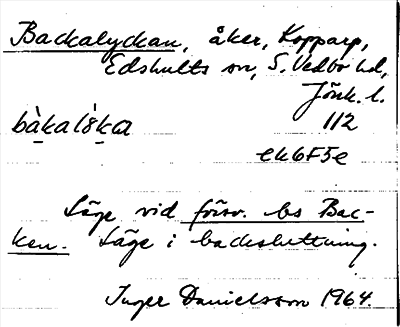 Backalyckan, åker, Kopparp,
Edshults sn, S. Vedbo hd,
Jönk. l.
bàkalỳka 112
ek6F5e
Läge vid försv. bs Bac-
ken. Läge i backsluttning.
Inger Danielsson 1964.